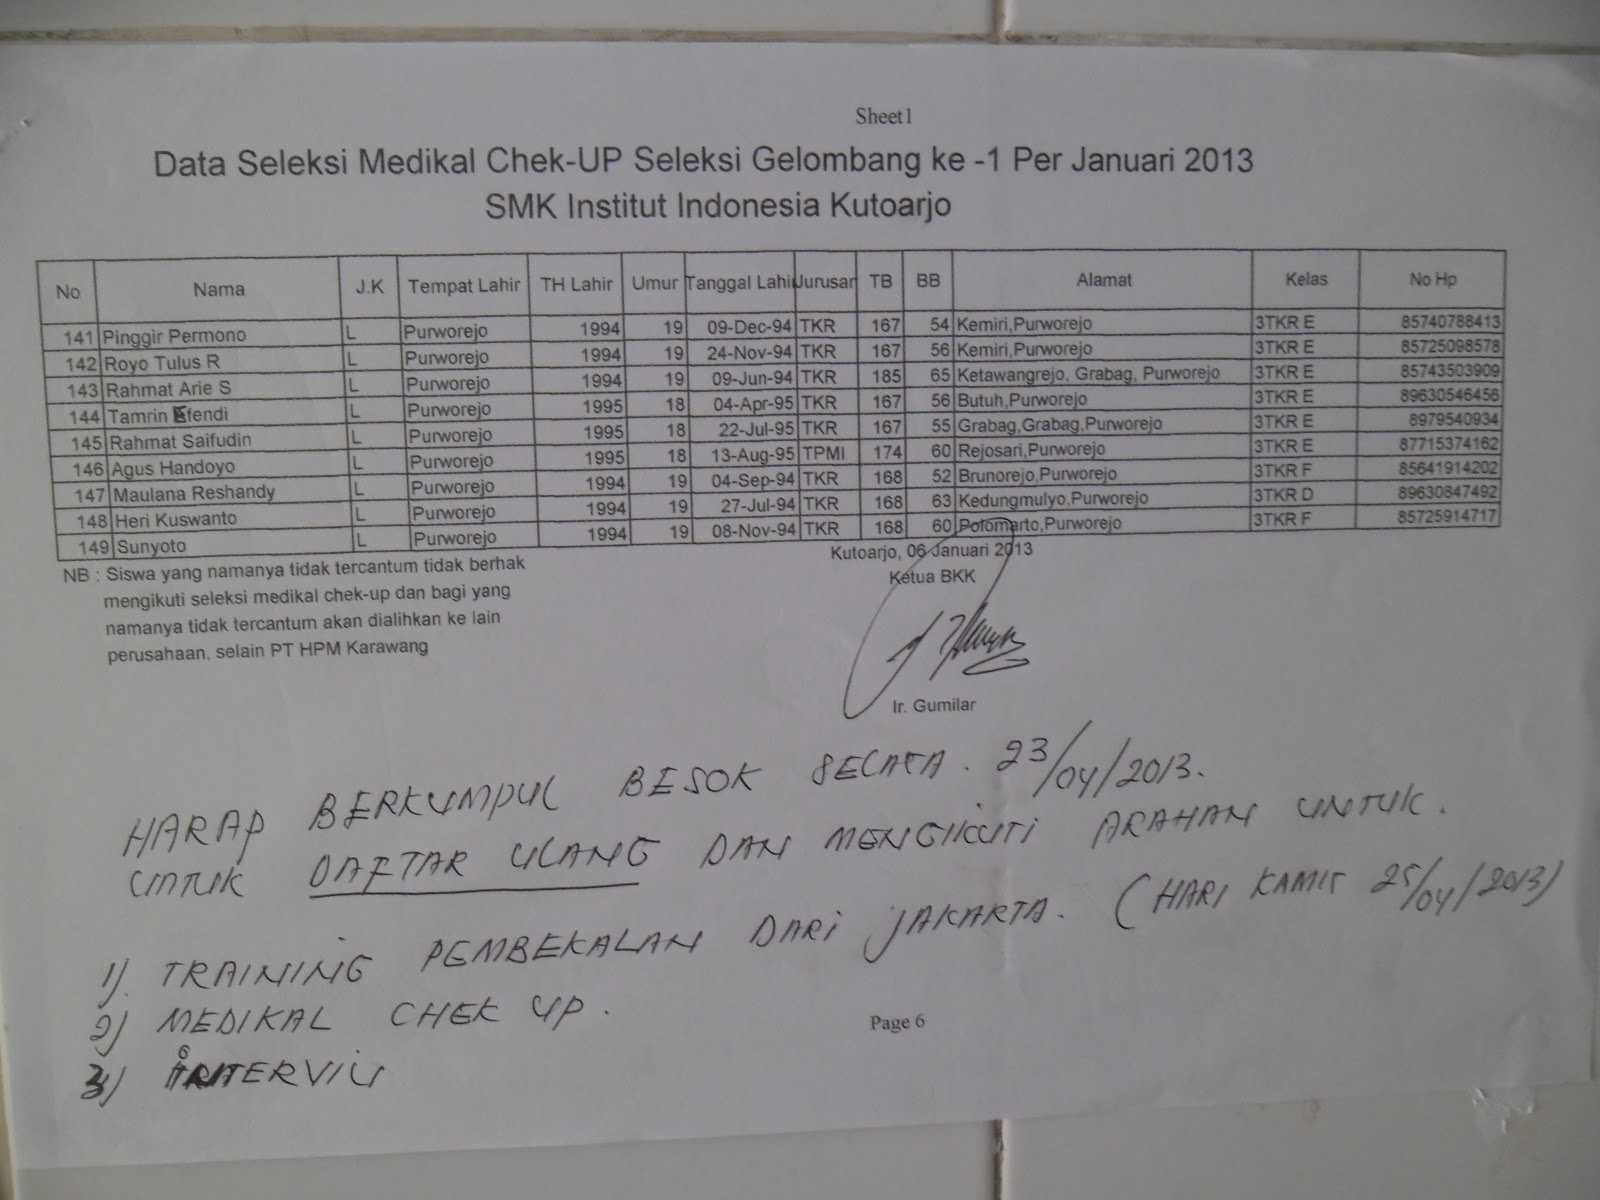 Sheet1
Data Seleksi Medikal Chek-UP Seleksi Gelombang ke -1 Per Januari 2013
SMK Institut Indonesia Kutoarjo
No Nama J.K Tempat Lahir TH Lahir Umur Tanggal Lahi Jurusar TB BB Alamat Kelas No Hp
141 Pinggir Permono L Purworejo 1994 19 09-Dec-94 TKR 167 54 Kemiri,Purworejo 3TKR E 85740788413
142 Royo Tulus R L Purworejo 1994 19 24-Nov-94 TKR 167 56 Kemiri,Purworejo 3TKR E 85725098578
143 Rahmat Arie S L Purworejo 1994 19 09-Jun-94 TKR 185 65 Ketawangrejo, Grabag, Purworejo 3TKR E 85743503909
144 Tamrin Efendi L Purworejo 1995 18 04-Apr-95 TKR 167 56 Butuh,Purworejo 3TKR E 89630546456
145 Rahmat Saifudin L Purworejo 1995 18 22-Jul-95 TKR 167 55 Grabag,Grabag,Purworejo 3TKR E 8979540934
146 Agus Handoyo L Purworejo 1995 18 13-Aug-95 TPMI 174 60 Rejosari,Purworejo 3TKR E 87715374162
147 Maulana Reshandy L Purworejo 1994 19 04-Sep-94 TKR 168 52 Brunorejo,Purworejo 3TKR F 85641914202
148 Heri Kuswanto L Purworejo 1994 19 27-Jul-94 TKR 168 63 Kedungmulyo,Purworejo 3TKR D 89630847492
149 Sunyoto L Purworejo 1994 19 08-Nov-94 TKR 168 60 Polomarto,Purworejo 3TKR F 85725914717
NB : Siswa yang namanya tidak tercantum tidak berhak
mengikuti seleksi medikal chek-up dan bagi yang
namanya tidak tercantum akan dialihkan ke lain
perusahaan, selain PT HPM Karawang
Kutoarjo, 06 Januari 2013
Ketua BKK
Ir. Gumilar
HARAP BERKUMPUL BESOK SELASA. 23/04/2013.
UNTUK DAFTAR ULANG DAN MENGIKUTI ARAHAN UNTUK.
1). TRAINING PEMBEKALAN DARI JAKARTA. (HARI KAMIS 25/04/2013)
2) MEDIKAL CHEK UP.
3) INTERVIU
Page 6